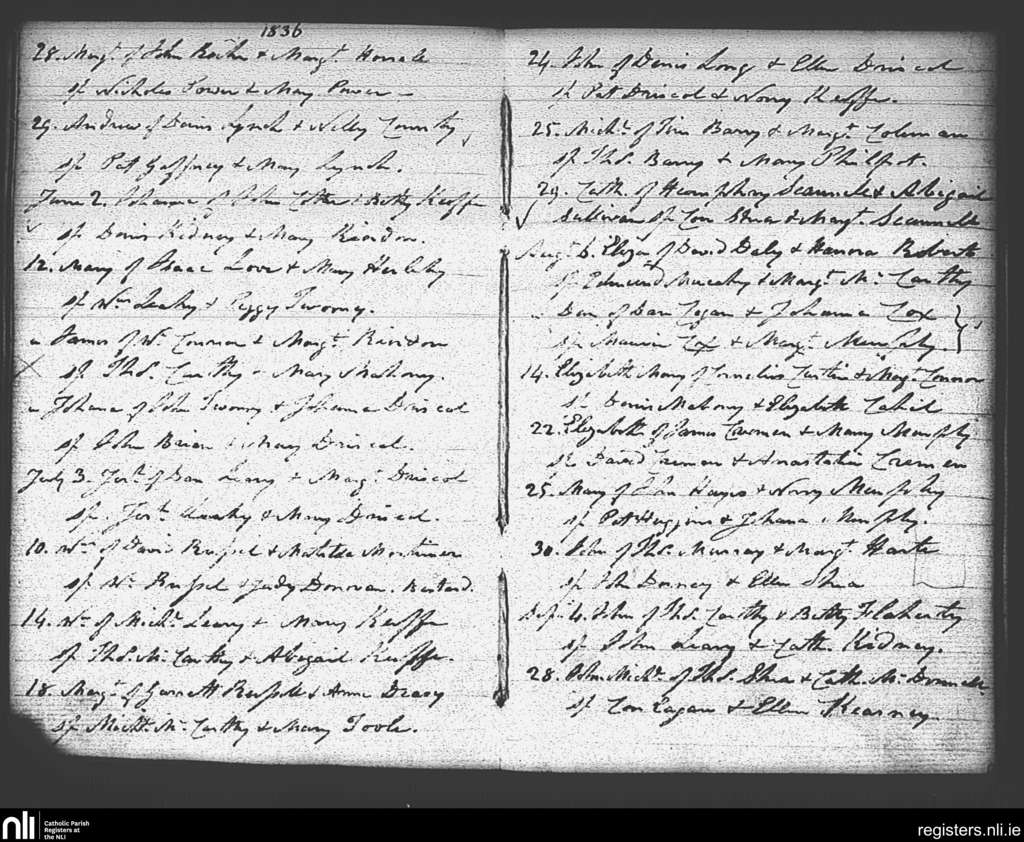 1836
28. Margt. of John Roche & Margt.
sp Nicholas Power & Mary Power
29. Andrew of Denis Lynch & Nelly
sp. Pat Gaffney & Mary Lynch.
June 2. Johanna of John & Betty Keeffe
sp Denis Kidney & Mary Riordon.
12. Mary of Isaac Love & Mary Herlihy
sp Wm Leahy & Peggy Twomy.
" James of Wm. Connor & Margt. Riordon
sp Ths. Carthy & Mary Mahony.
" Johana of John Twomy & Johanna Driscol
sp John Brien & Mary Driscol.
July 3. Jerh. of Dan Leary & Margt. Driscol
sp. Jerh. Leahy & Mary Driscol.
10. Wm of David Russel & Matilda Mortimer
sp Wm. Russel & Judy Donovan. Bastard.
14. Wm of Michl. Leary & Mary Keeffe
sp Ths. Mc. Carthy & Abigail Keeffe.
18. Margt. of Garrett Russell & Anne Deasy
sp Michl. Mc. Carthy & Mary Toole.
24. John of Denis Long & Ellen Driscol
sp Pat Driscol & Nory Keeffe.
25. Michl. of Tim Barry & Margt. Coleman
sp Ths. Barry & Mary Philpot.
29. Cath. of Humphry Scannell & Abigail
Sullivan sp Con Shea & Margt. Scannell
Augt. Eliza of David Daly & Hanora Roberts
sp Edmund & Margt. Mc. Carthy
" Dan of Dan Cogan & Johanna Cox
sp Maurice Cox & Margt. Murphy.
14. Elizabeth Mary of Cornelius & Margt. Connor
sp Denis Mahony & Elizabeth Cahil
22. Elizabeth of James Cremen & Mary Murphy
sp David Cremen & Anastatia Cremen
25. Mary of John Hayes & Nory Murphy
sp Pat Huggins & Johana Murphy.
30. John of Ths. Murray & Margt. Harte
sp John & Ellen Shea
Sep. 4. John of Ths. Carthy & Betty Flaherty
sp John Leary & Cath. Kidney.
28. John Michl. of Ths. Shea & Cath. Mc. Donnell
sp Con Eagan & Ellen Kearney.
nli
Catholic Parish
Registers at
the NLI
registers.nli.ie